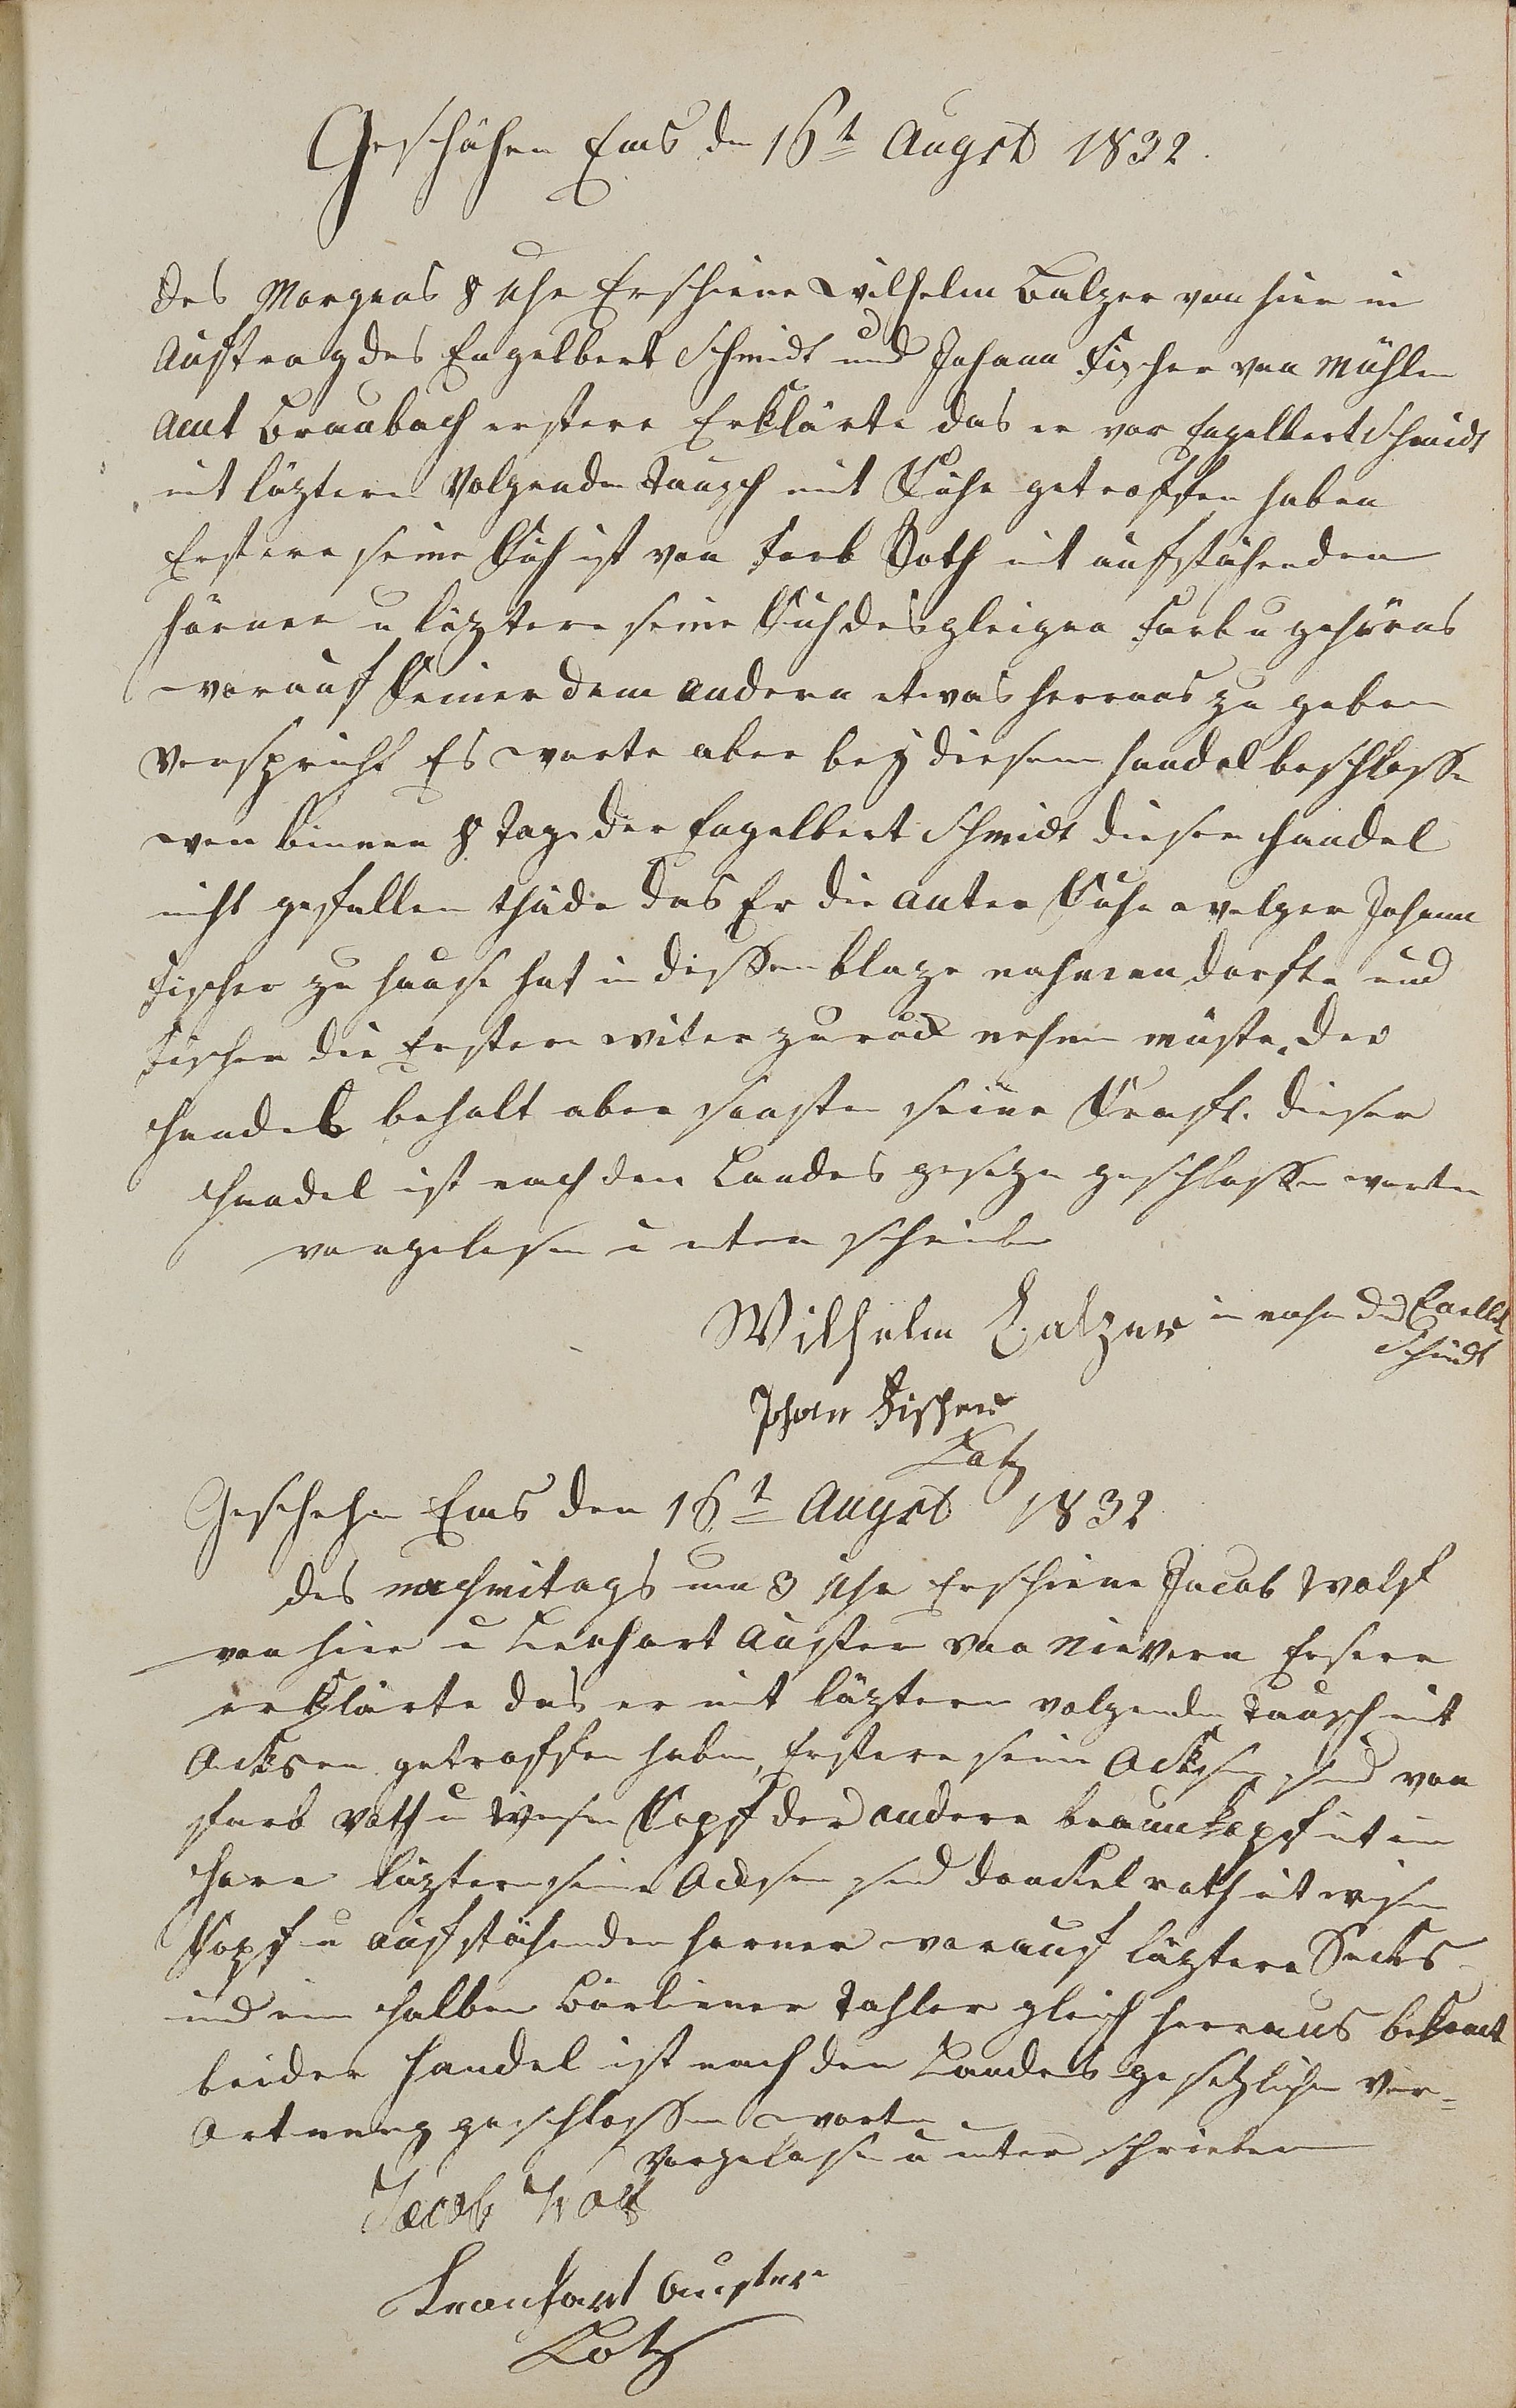 Geschähen Ems den 16t Augst 1832.
des Morgens 8 Uhr Erschiene Wilhelm Balzer von hier in
Auftrag des Engelbert Schmidt und Johann Fischer von Mühlen
Amt Braubach erstere Erklärte das er vor Engelbert Schmidt
mit läztern Volgenden Tausch mit Kühe getroffen haben
Erstere seine Kuh ist von Farb Roth mit aufstähenden
Hörner u läztere seine Kuh desgleigen Farb u gehörns
worauf Keiner dem andern etwas herraus zu geben
Verspricht Es warte aber bey diesem Handel beschlossen
wen binnen 8 Tage der Engelbert Schmidt dieser Handel
nicht gefallen thäde das Er die anter Kuhe welger Johann
Fischer zu hause hat in dissem blaze nehmen dorfte und
Fischer die Erstere witer zurück nehmen müste, der
Handel behalt aber sonsten seine Kraft. dieser
Handel ist nach den Landes gesetze geschlossen worten
vorgelesen u unter schrieben
Wilhelm Balzer in nahmen des
Schmidt
Johan Fischer
Lotz
Geschehen Ems den 16t Augst 1832
des nachmitags um 3 Uhr Erschiene Jacob Wolf
von hier u Lenhart Auster von Nievern Ersere
erklärte das er mit läztern volgenden Tausch mit
Ocksen getroffen haben, Erstere seine Ocksen sind von
farb roth u weisen Kopf der andere braunkopf mit ein
Horn läztere seine Ocksen sind donckel roth mit weisen
Kopf u aufstähenden Horner worauf läztere Secks
und ein halben Berliener Tahler gleich herraus bekomt
beider Handel ist nach den Landes gesetzlichen Ver-
ortnung geschlossen worten
vorgelesen u unter schrieben
Jacob Wolf
Leonhart Auster
Lotz